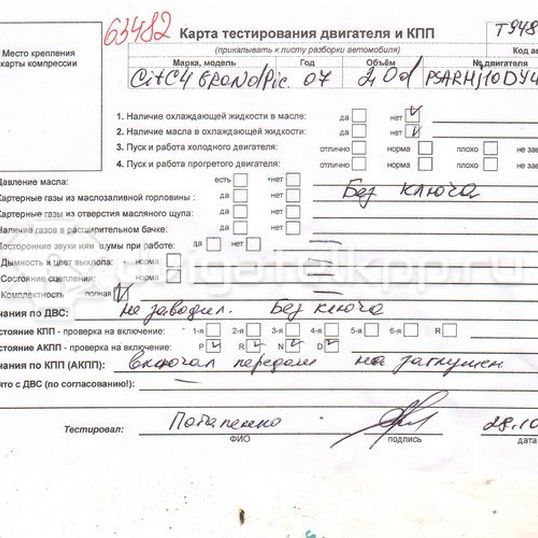 63482 Карта тестирования двигателя и КПП
Место крепления
карты компрессии
(прикалывать к листу разборки автомобиля)
Код ав
Марка, модель Год Объём № двигателя
Cit C4 Grand/Pic. 07 2,0d
1. Наличие охлаждающей жидкости в масле: да нет
2. Наличие масла в охлаждающей жидкости: да нет
3. Пуск и работа холодного двигателя: отлично норма плохо не зав
4. Пуск и работа прогретого двигателя: отлично норма плохо не зав
Давление масла: есть нет
Картерные газы из маслозаливной горловины: да нет Без ключа
Картерные газы из отверстия масляного щупа: да нет
Наличие газов в расширительном бачке: да нет
Посторонние звуки или шумы при работе: да нет
Дымность и цвет выхлопа: норма
Состояние сцепления: норма
Комплектность полная
чания по ДВС: не заводил. Без ключа
стояние КПП - проверка на включение: 1-я 2-я 3-я 4-я 5-я 6-я R
стояние АКПП - проверка на включение: P R N D
чания по КПП (АКПП): включал передачи на заглушен
ято с ДВС (по согласованию!):
Тестировал: Потапенко 28.10
ФИО подпись дата
dvigatelkpp.ru